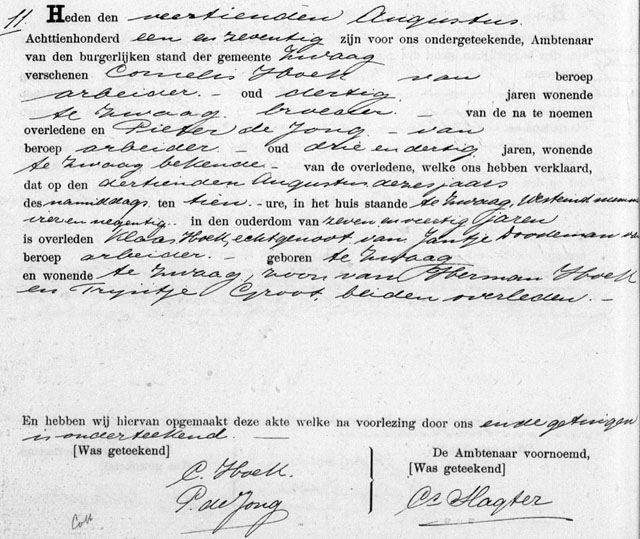 11. Heden den veertienden Augustus
Achttienhonderd een en zeventig zijn voor ons ondergeteekende, Ambtenaar
van den burgerlijken stand der gemeente Zwaag
verschenen Cornelis Hoek van beroep
arbeider. — oud dertig. jaren wonende
te Zwaag. broeder. — van de na te noemen
overledene en Pieter de Jong — van
beroep arbeider. — oud drie en dertig jaren, wonende
te Zwaag bekende — van de overledene, welke ons hebben verklaard,
dat op den dertienden Augustus dezes jaars
des namiddags ten tien — ure, in het huis staande te Zwaag, Westeind nummer
vier en negentig — in den ouderdom van zeven en veertig jaren
is overleden Klaas Hoek, echtgenoot van Jantje Doodeman van
beroep arbeider. — geboren te Zwaag
en wonende te Zwaag, zoon van Herman Hoek
en Trijntje Groot, beiden overleden. —
En hebben wij hiervan opgemaakt deze akte welke na voorlezing door ons en de getuigen
is onderteekend. —
[Was geteekend]
C. Hoek.
P. de Jong
De Ambtenaar voornoemd,
[Was geteekend]
Cs Slagter
Coll